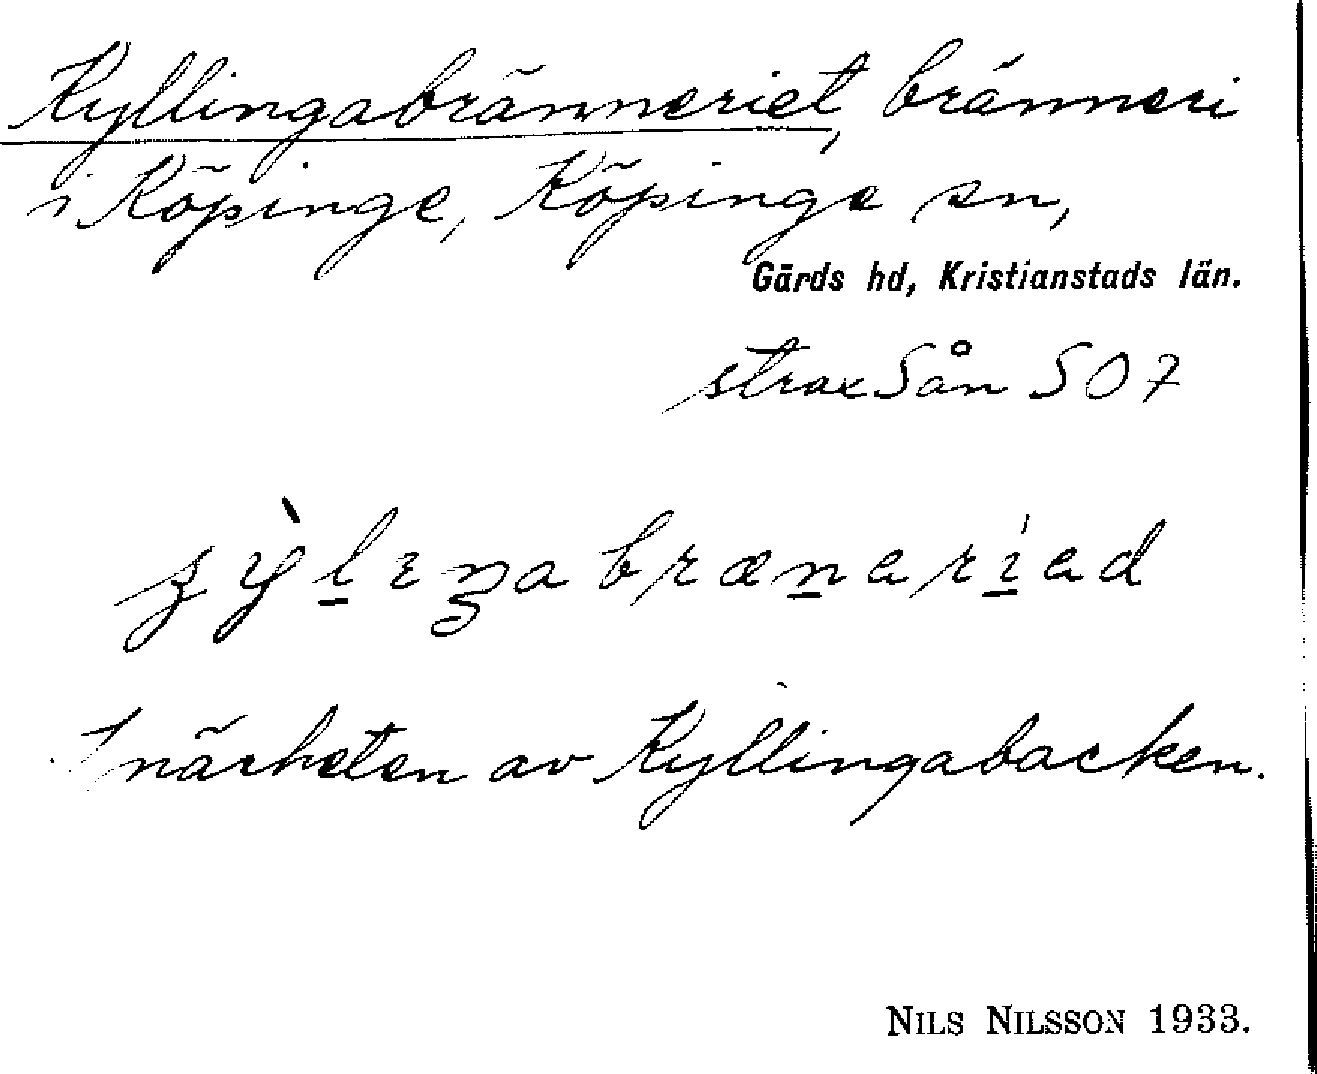 Kyllingabränneriet, bränneri
i Köpinge, Köpinge sn,
Gärds hd, Kristianstads län.
strax S ån SO 7
I närheten av Kyllingabacken.
NILS NILSSON 1933.